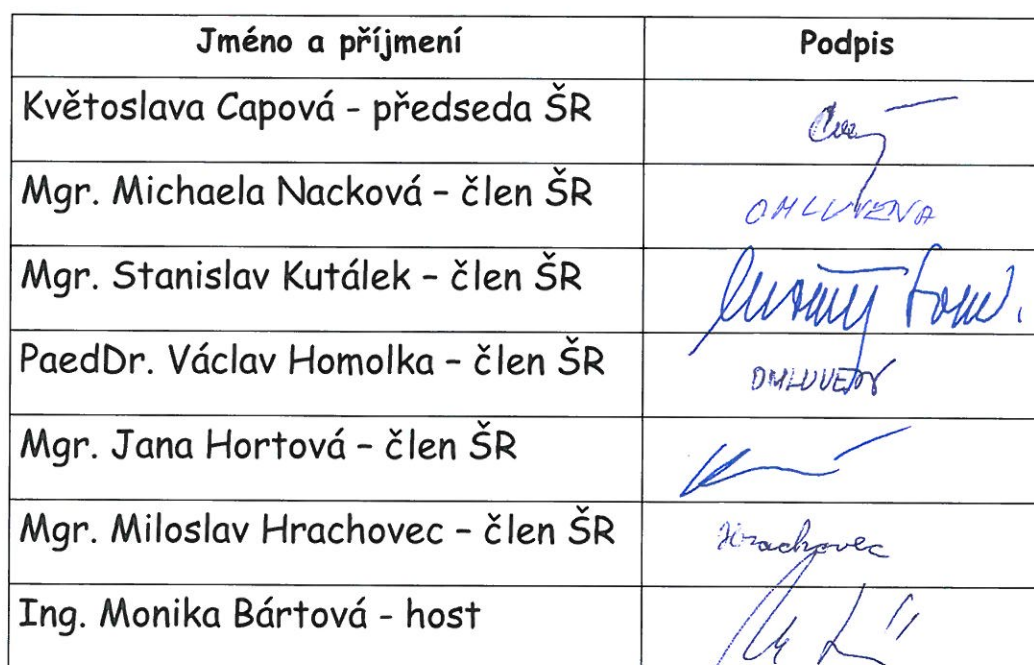 Jméno a příjmení Podpis
Květoslava Capová - předseda ŠR
Mgr. Michaela Nacková – člen ŠR OMLUVENA
Mgr. Stanislav Kutálek – člen ŠR
PaedDr. Václav Homolka – člen ŠR OMLUVEN
Mgr. Jana Hortová – člen ŠR
Mgr. Miloslav Hrachovec – člen ŠR Hrachovec
Ing. Monika Bártová - host